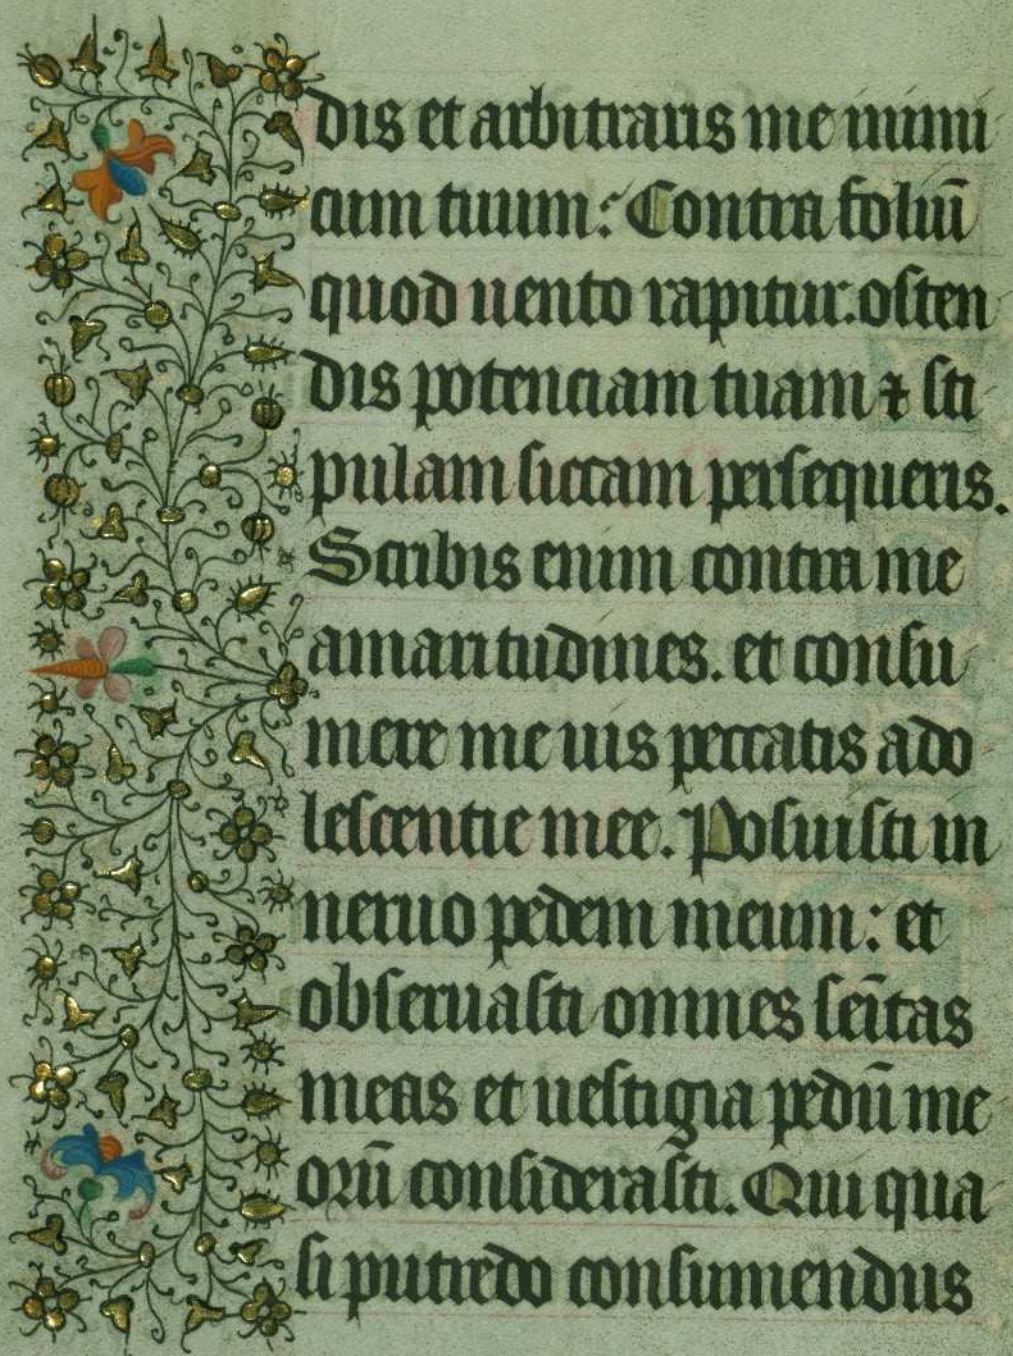 dis et arbitraris me inimi
cum tuum: Contra foliū
quod uento rapitur: osten
dis potenciam tuam ⁊ sti
pulam siccam persequeris.
Scribis enim contra me
amaritudines. et consu
mere me uis peccatis ado
lescentie mee. Posuisti in
neruo pedem meum: et
obseruasti omnes sēitas
meas et uestigia pedū me
orū considerasti. Qui qua
si putredo consumendus